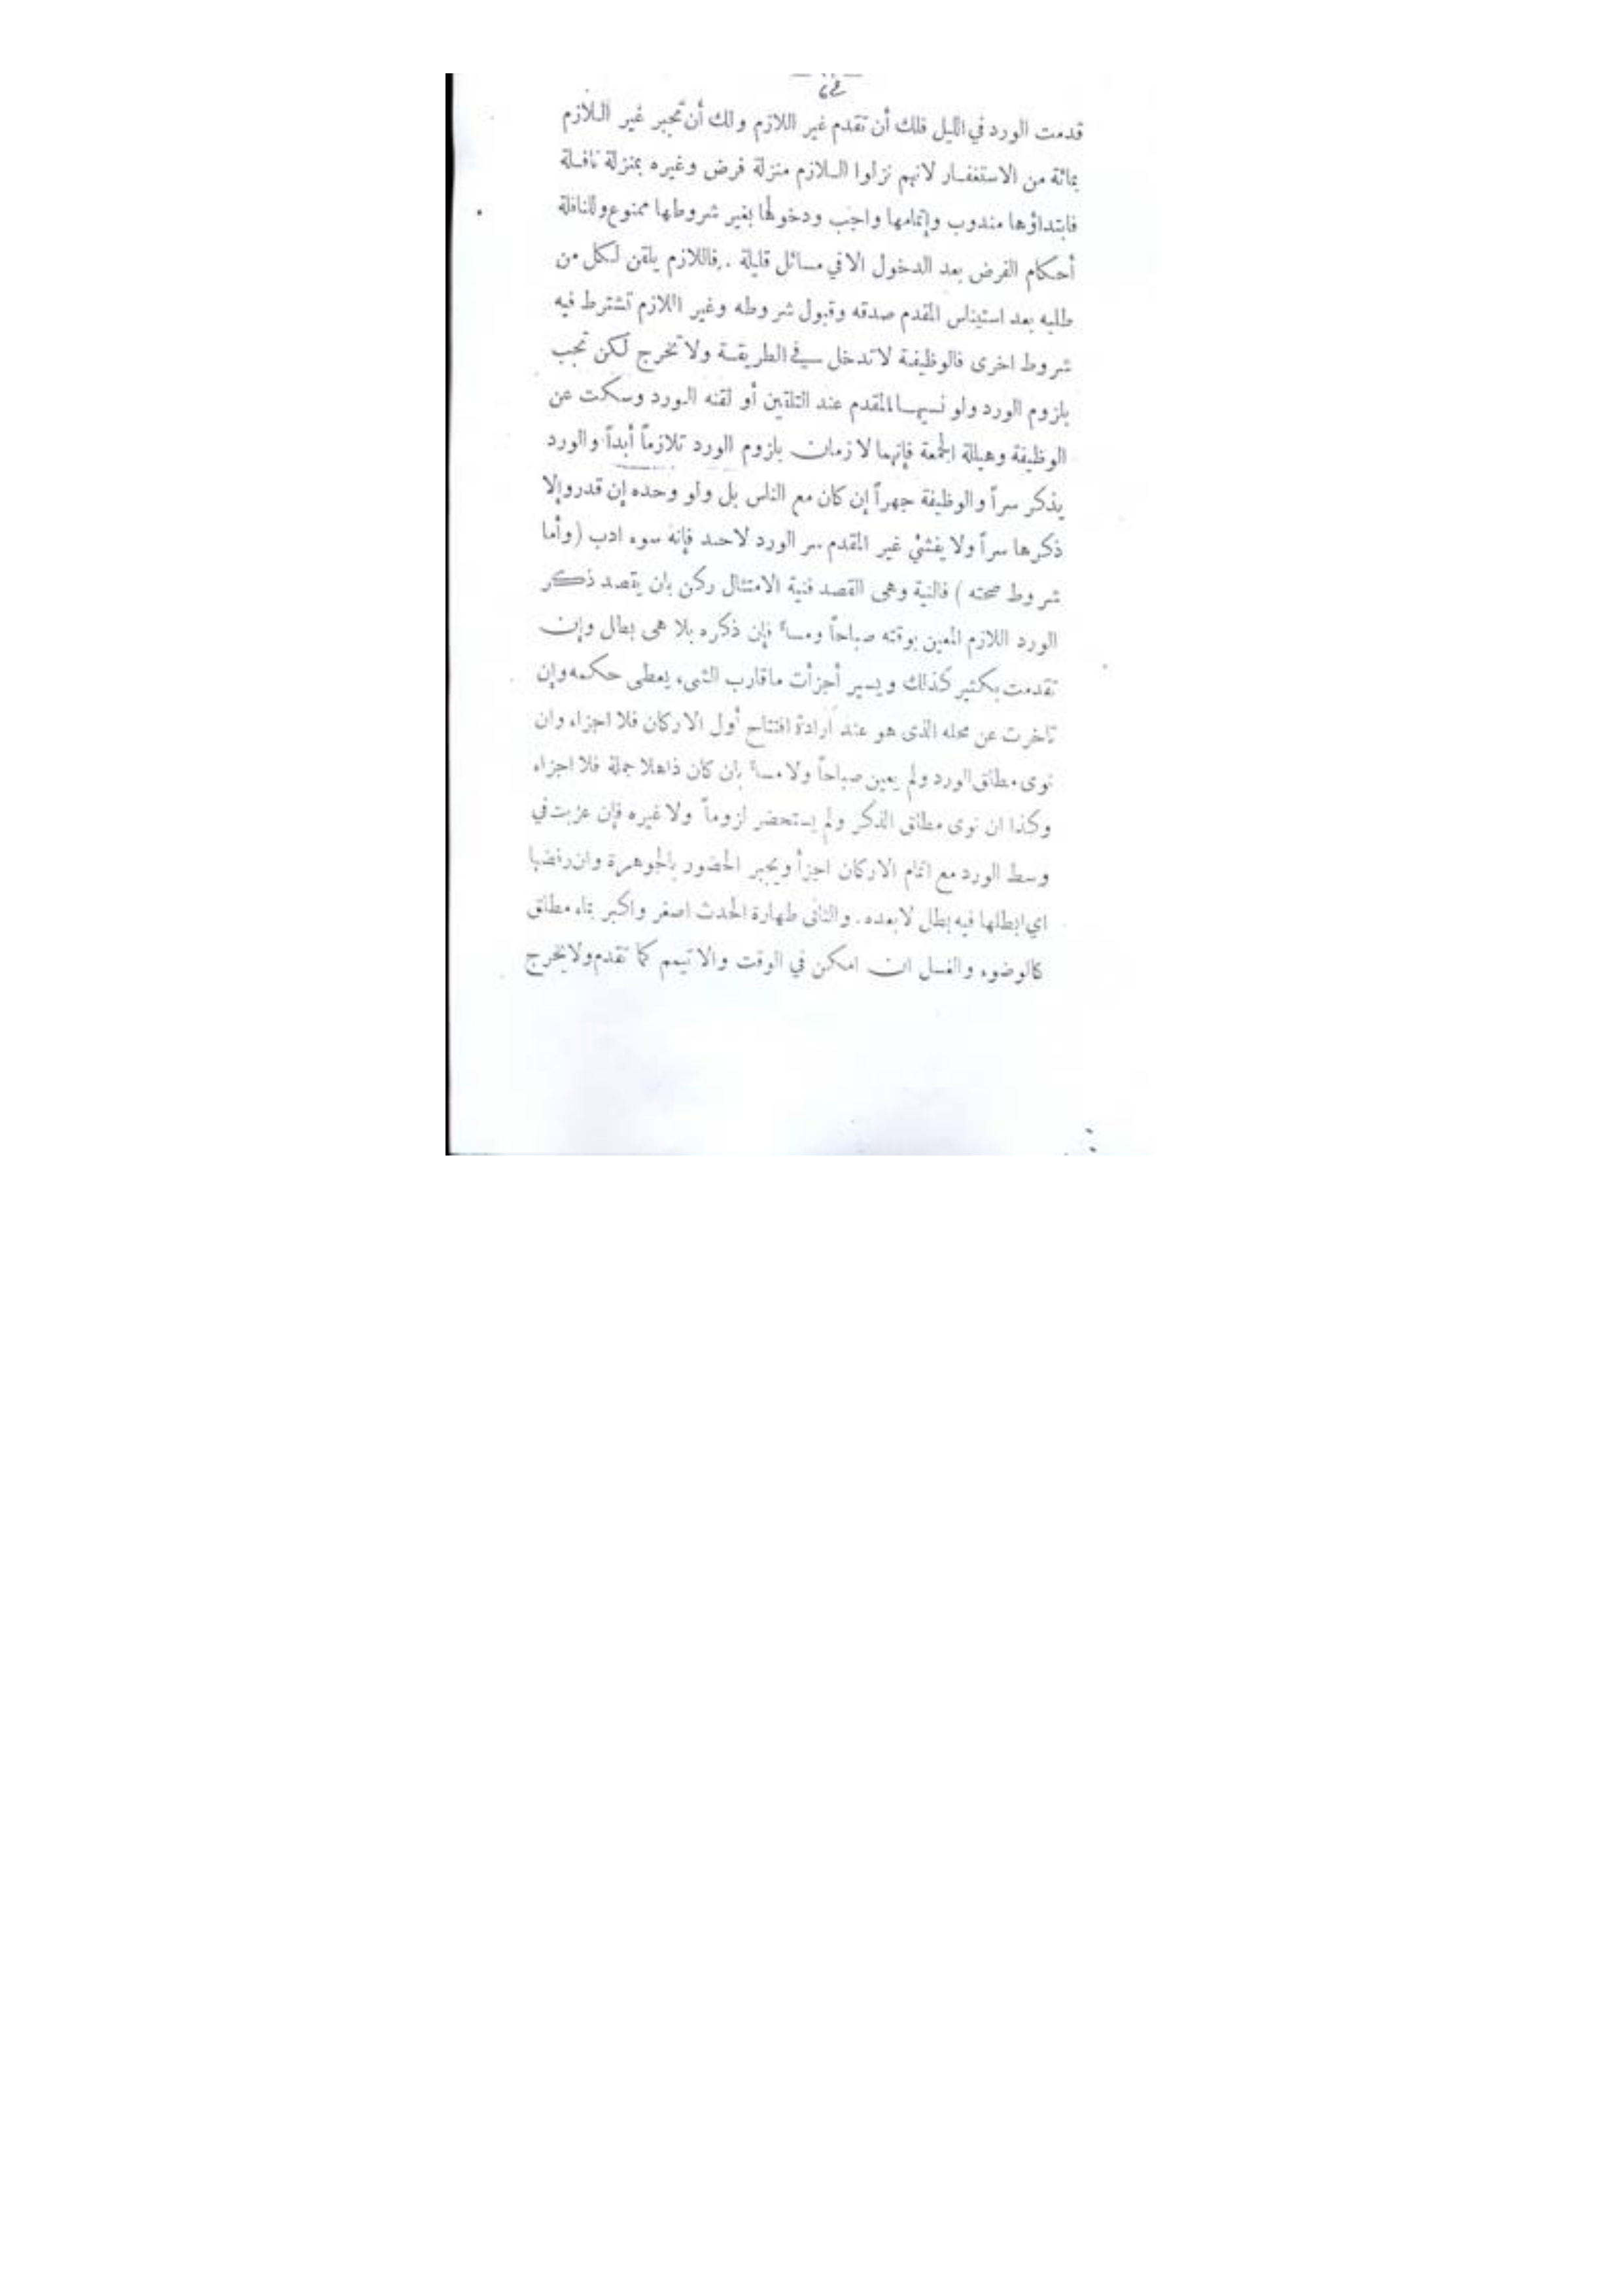 قدمت الورد في الليل فلك أن تقدم غير اللازم ولك أن تجبر غير اللازم
بمائة من الاستغفار لانهم نزلوا اللازم منزلة فرض وغيره بمنزلة نافلة
فابتداؤها مندوب وإتمامها واجب ودخولها بغير شروطها ممنوع وللنافلة
أحكام الفرض بعد الدخول الا في مسائل قليلة . فاللازم يلقن لكل من
طلبه بعد استيناس المقدم صدقه وقبول شروطه وغير اللازم تشترط فيه
شروط اخرى فالوظيفة لا تدخل في الطريقة ولا تخرج لكن تجب
بلزوم الورد ولو نسيها المقدم عند التلقين أو لقنه الورد وسكت عن
الوظيفة وهيللة الجمعة فإنهما لازمان بلزوم الورد تلازماً أبداً والورد
يذكر سراً والوظيفة جهراً إن كان مع الناس بل ولو وحده إن قدر وإلا
ذكرها سراً ولا يفشي غير المقدم سر الورد لاحد فإنه سوء ادب (وأما
شروط صحته ) فالنية وهى القصد فنية الامتثال ركن بان يقصد ذكر
الورد اللازم المعين بوقته صباحاً ومساءً فإن ذكره بلا هى بطل وإن
تقدمت بكثير كذلك ويسير أجزأت ماقارب الشىء يعطى حكمه وإن
تاخرت عن محله الذى هو عند ارادة افتتاح أول الاركان فلا اجزاء وان
نوى مطلق الورد ولم يعين صباحاً ولا مساءً بان كان ذاهلا جملة فلا اجزاء
وكذا ان نوى مطلق الذكر ولم يستحضر لزوماً ولا غيره فإن عزبت في
وسط الورد مع اتمام الاركان اجزأ ويجبر الحضور بالجوهرة وان رفضها
اي ابطلها فيه بطل لا بعده . والثانى طهارة الحدث اصغر واكبر بماء مطلق
كالوضوء والغسل ان امكن في الوقت والا تيمم كما تقدم ولا يخرج